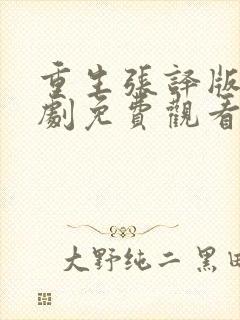 重生張譯版
劇免費觀看
大野纯二 黑田